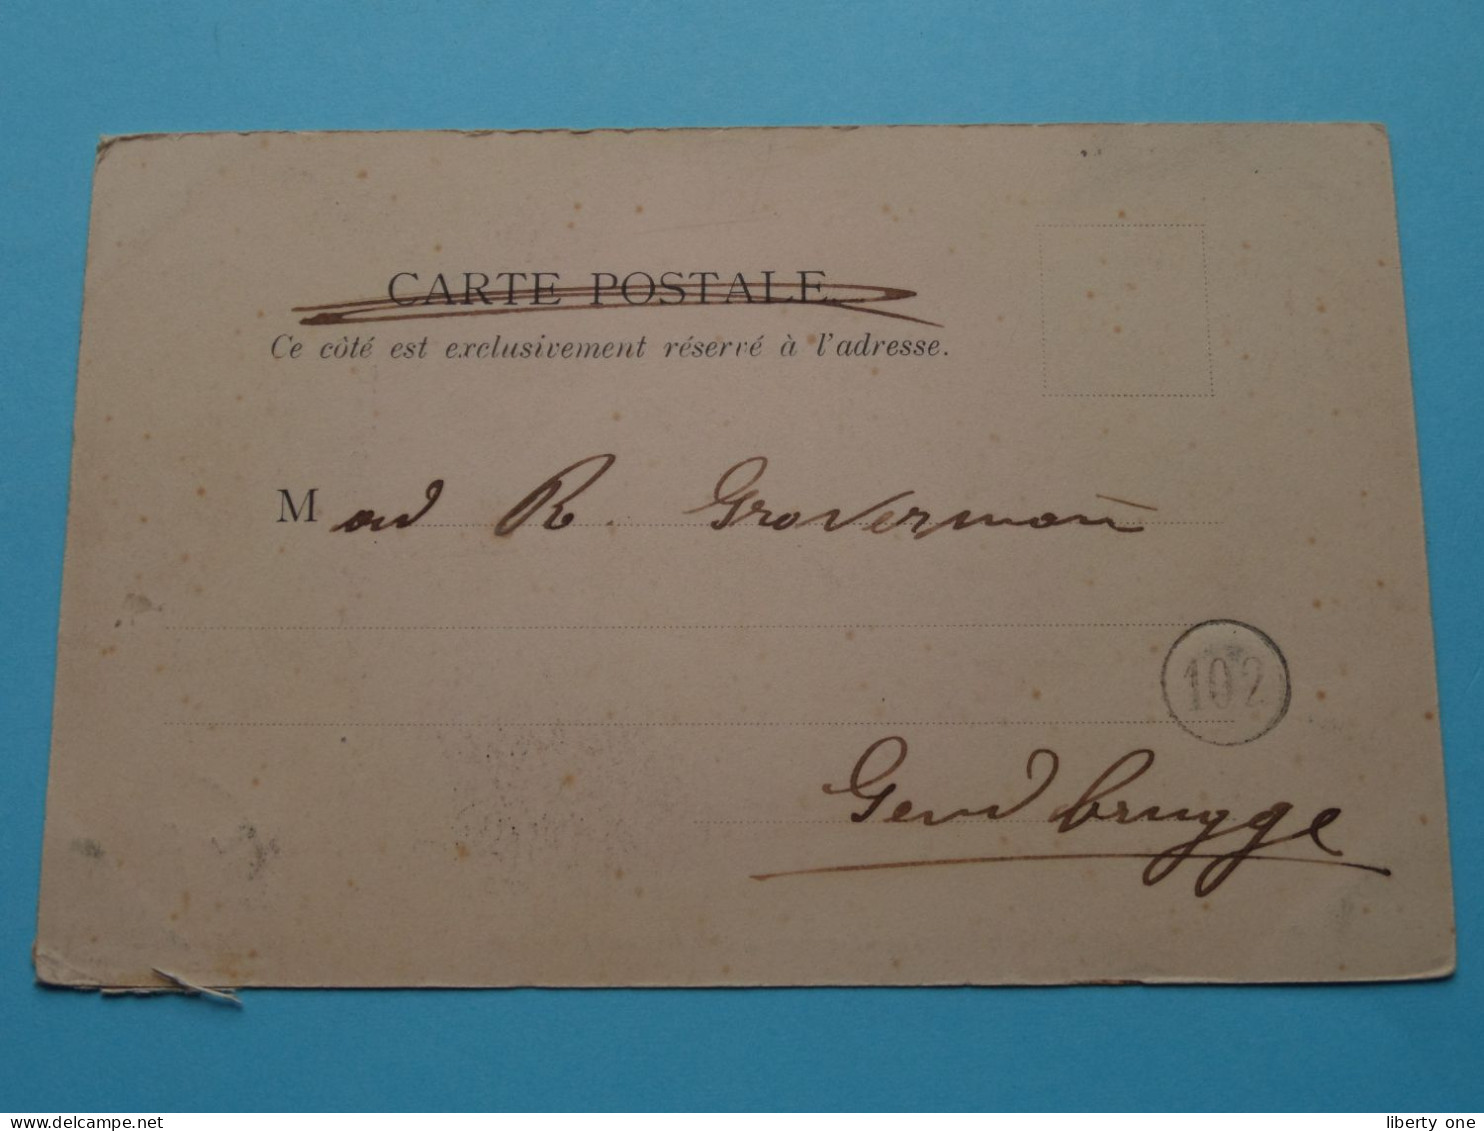 CARTE POSTALE
Ce côté est exclusivement réservé à l'adresse.
Mad R. Groverman
102
Gendbrugge
liberty one